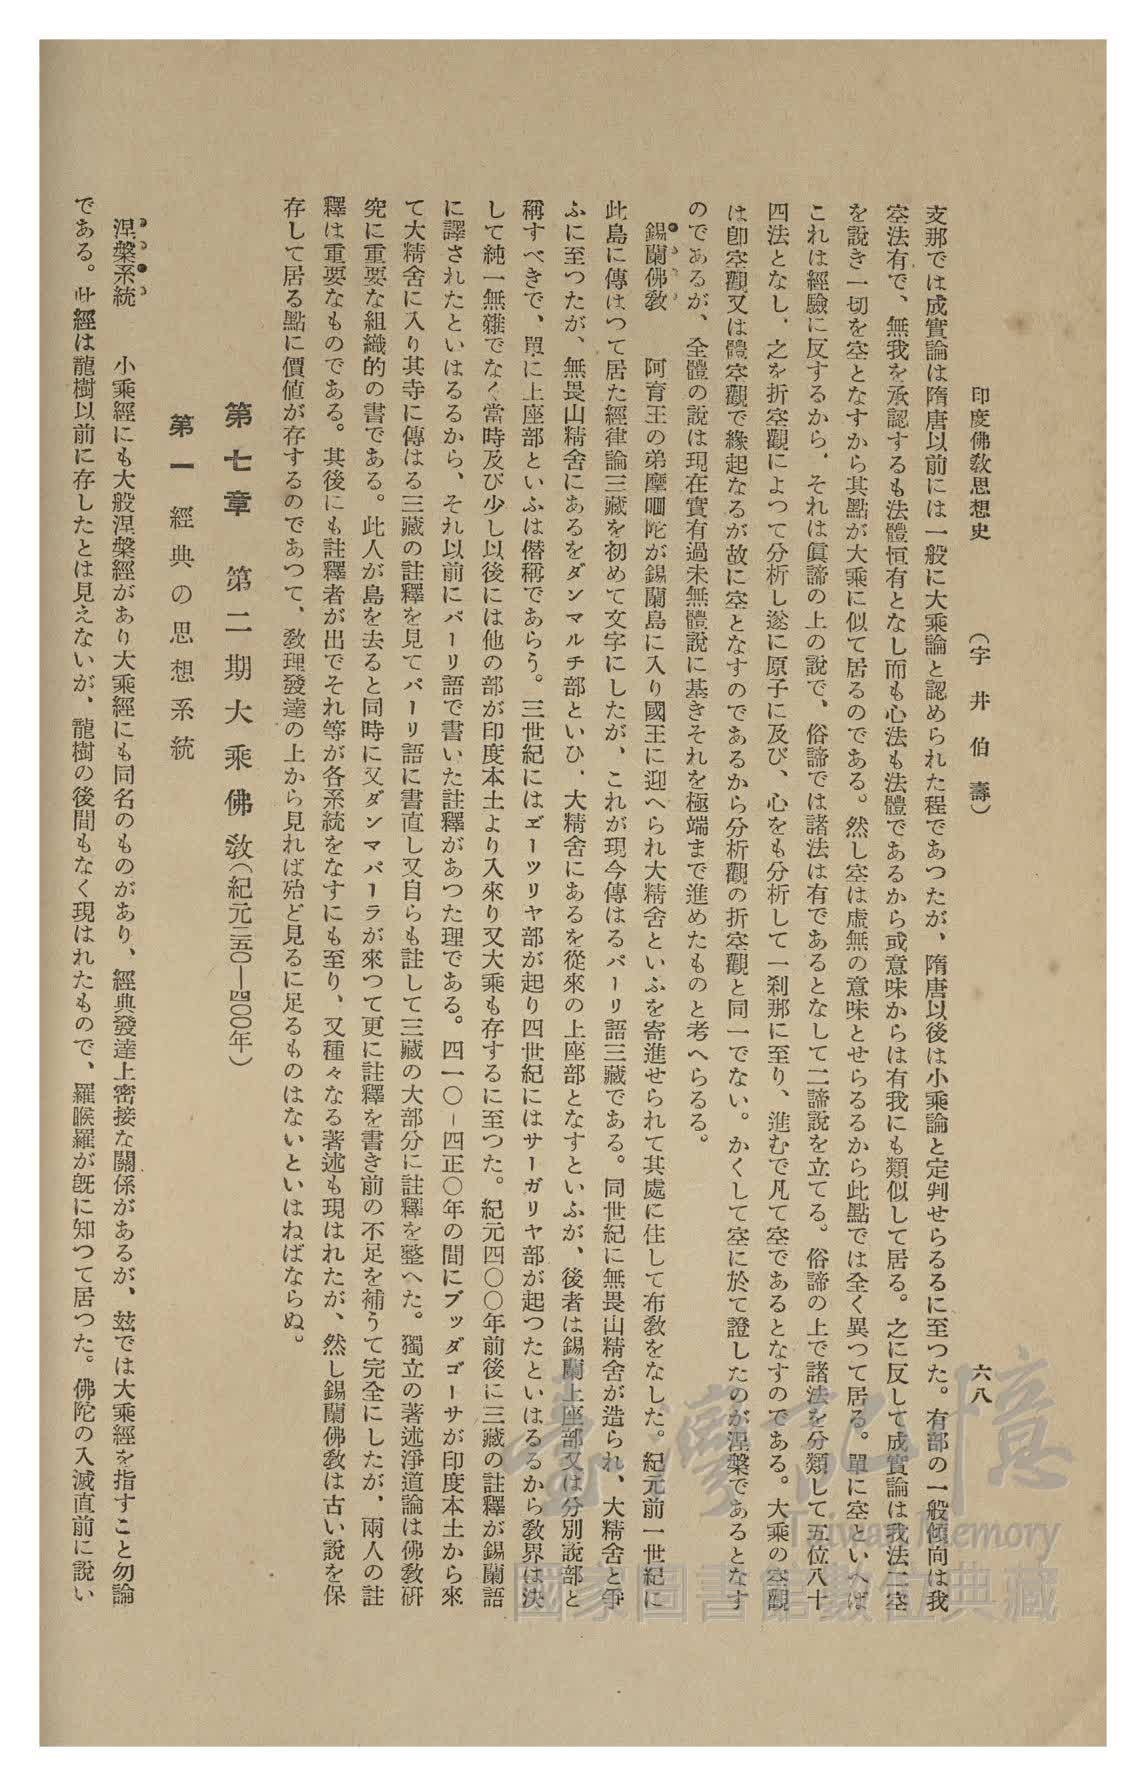 印度佛敎思想史　（宇井伯壽）　六八
支那では成實論は隋唐以前には一般に大乘論と認められた程であつたが、隋唐以後は小乘論と定判せらるるに至つた。有部の一般傾向は我
空法有で、無我を承認するも法體恒有となし而も心法も法體であるから或意味からは有我にも類似して居る。之に反して成實論は我法二空
を說き一切を空となすから其點が大乘に似て居るのである。然し空は虛無の意味とせらるるから此點では全く異つて居る。單に空といへば
これは經驗に反するから、それは眞諦の上の說で、俗諦では諸法は有であるとなして二諦說を立てる。俗諦の上で諸法を分類して五位八十
四法となし、之を折空觀によつて分析し遂に原子に及び、心をも分析して一刹那に至り、進むで凡て空であるとなすのである。大乘の空觀
は卽空觀又は體空觀で緣起なるが故に空となすのであるから分析觀の折空觀と同一でない。かくして空に於て證したのが涅槃であるとなす
のであるが、全體の說は現在實有過未無體說に基きそれを極端まで進めたものと考へらるる。
錫蘭佛敎　阿育王の弟摩哂陀が錫蘭島に入り國王に迎へられ大精舍といふを寄進せられて其處に住して布敎をなした。紀元前一世紀に
此島に傳はつて居た經律論三藏を初めて文字にしたが、これが現今傳はるパーリ語三藏である。同世紀に無畏山精舍が造られ、大精舍と爭
ふに至つたが、無畏山精舍にあるをダンマルチ部といひ、大精舍にあるを從來の上座部となすといふが、後者は錫蘭上座部又は分別說部と
稱すべきで、單に上座部といふは僭稱であらう。三世紀にはヹーツリヤ部が起り四世紀にはサーガリヤ部が起つたといはるるから敎界は決
して純一無雜でなく當時及び少し以後には他の部が印度本土より入來り又大乘も存するに至つた。紀元四〇〇年前後に三藏の註釋が錫蘭語
に譯されたといはるるから、それ以前にパーリ語で書いた註釋があつた理である。四一〇－四正〇年の間にブッダゴーサが印度本土から來
て大精舍に入り其寺に傳はる三藏の註釋を見てパーリ語に書直し又自らも註して三藏の大部分に註釋を整へた。獨立の著述淨道論は佛敎硏
究に重要な組織的の書である。此人が島を去ると同時に又ダンマパーラが來つて更に註釋を書き前の不足を補うて完全にしたが、兩人の註
釋は重要なものである。其後にも註釋者が出でそれ等が各系統をなすにも至り、又種々なる著述も現はれたが、然し錫蘭佛敎は古い說を保
存して居る點に價値が存するのであつて、敎理發達の上から見れば殆ど見るに足るものはないといはねばならぬ。
第七章　第二期大乘佛敎（紀元二五〇—四〇〇年）
第一　經典の思想系統
涅槃系統　小乘經にも大般涅槃經があり大乘經にも同名のものがあり、經典發達上密接な關係があるが、玆では大乘經を指すこと勿論
である。此經は龍樹以前に存したとは見えないが、龍樹の後間もなく現はれたもので、羅睺羅が旣に知つて居つた。佛陀の入滅直前に說い
臺灣記憶
Taiwan Memory
國家圖書館數位典藏